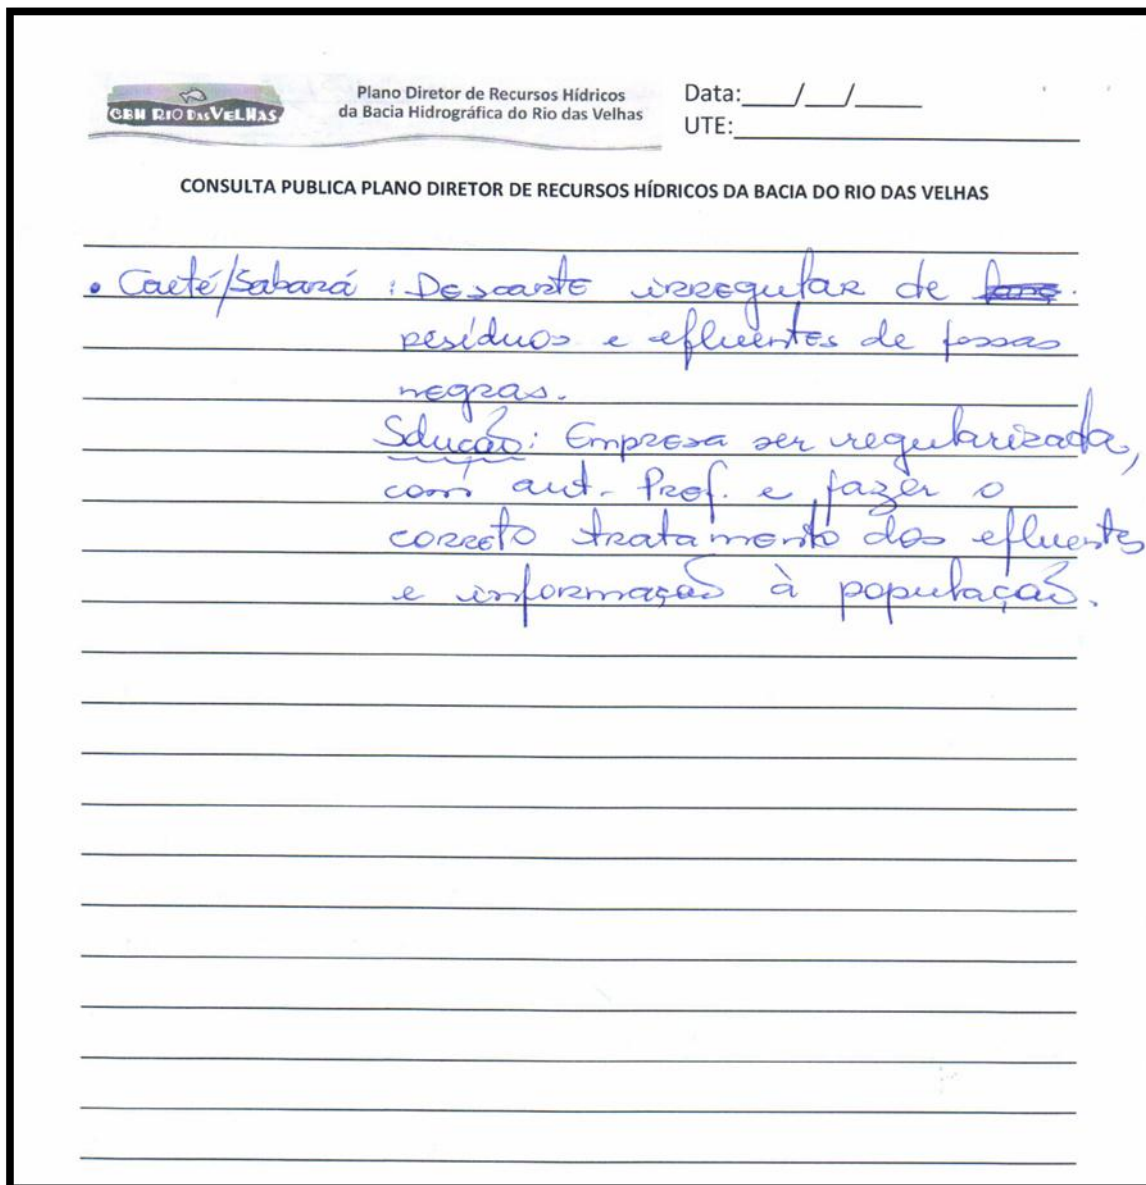 CBH RIO DAS VELHAS
Plano Diretor de Recursos Hídricos
da Bacia Hidrográfica do Rio das Velhas
Data:____/__/_____
UTE:__________________________
CONSULTA PUBLICA PLANO DIRETOR DE RECURSOS HÍDRICOS DA BACIA DO RIO DAS VELHAS
• Caeté/Sabará : Descarte irregular de
resíduos e efluentes de fossas
negras.
Solução: Empresa ser regularizada,
com aut. Prof. e fazer o
correto tratamento dos efluentes
e informação à população.